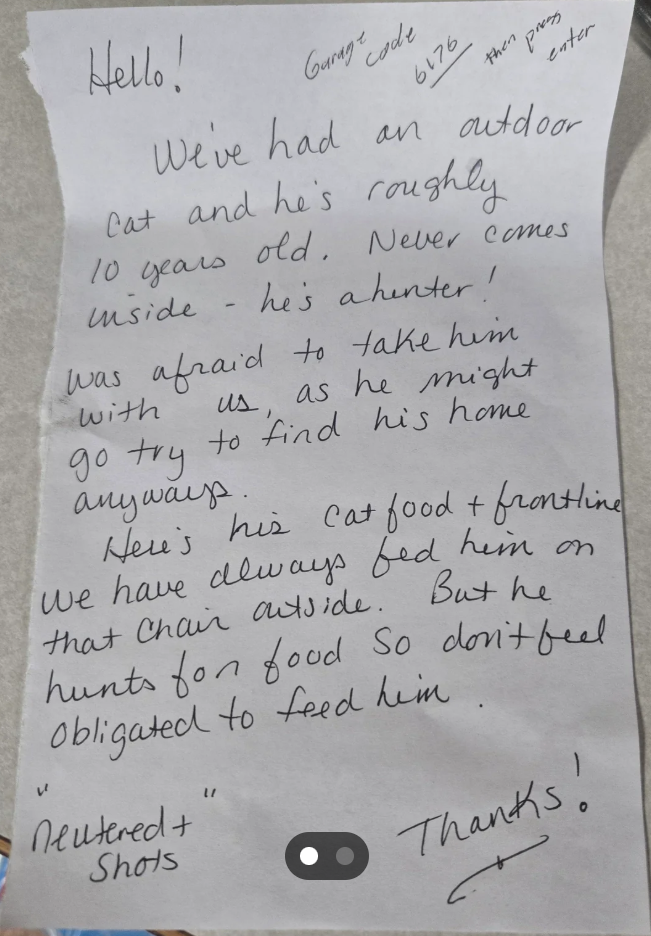 Hello!
Garage code 6676 then press enter
We've had an outdoor
cat and he's roughly
10 years old. Never comes
inside - he's a hunter!
was afraid to take him
with us, as he might
go try to find his home
anyways.
Here's his cat food + frontline
we have always fed him on
that chair outside. But he
hunts for food so don't feel
obligated to feed him.
"Neutered +
Shots"
Thanks!